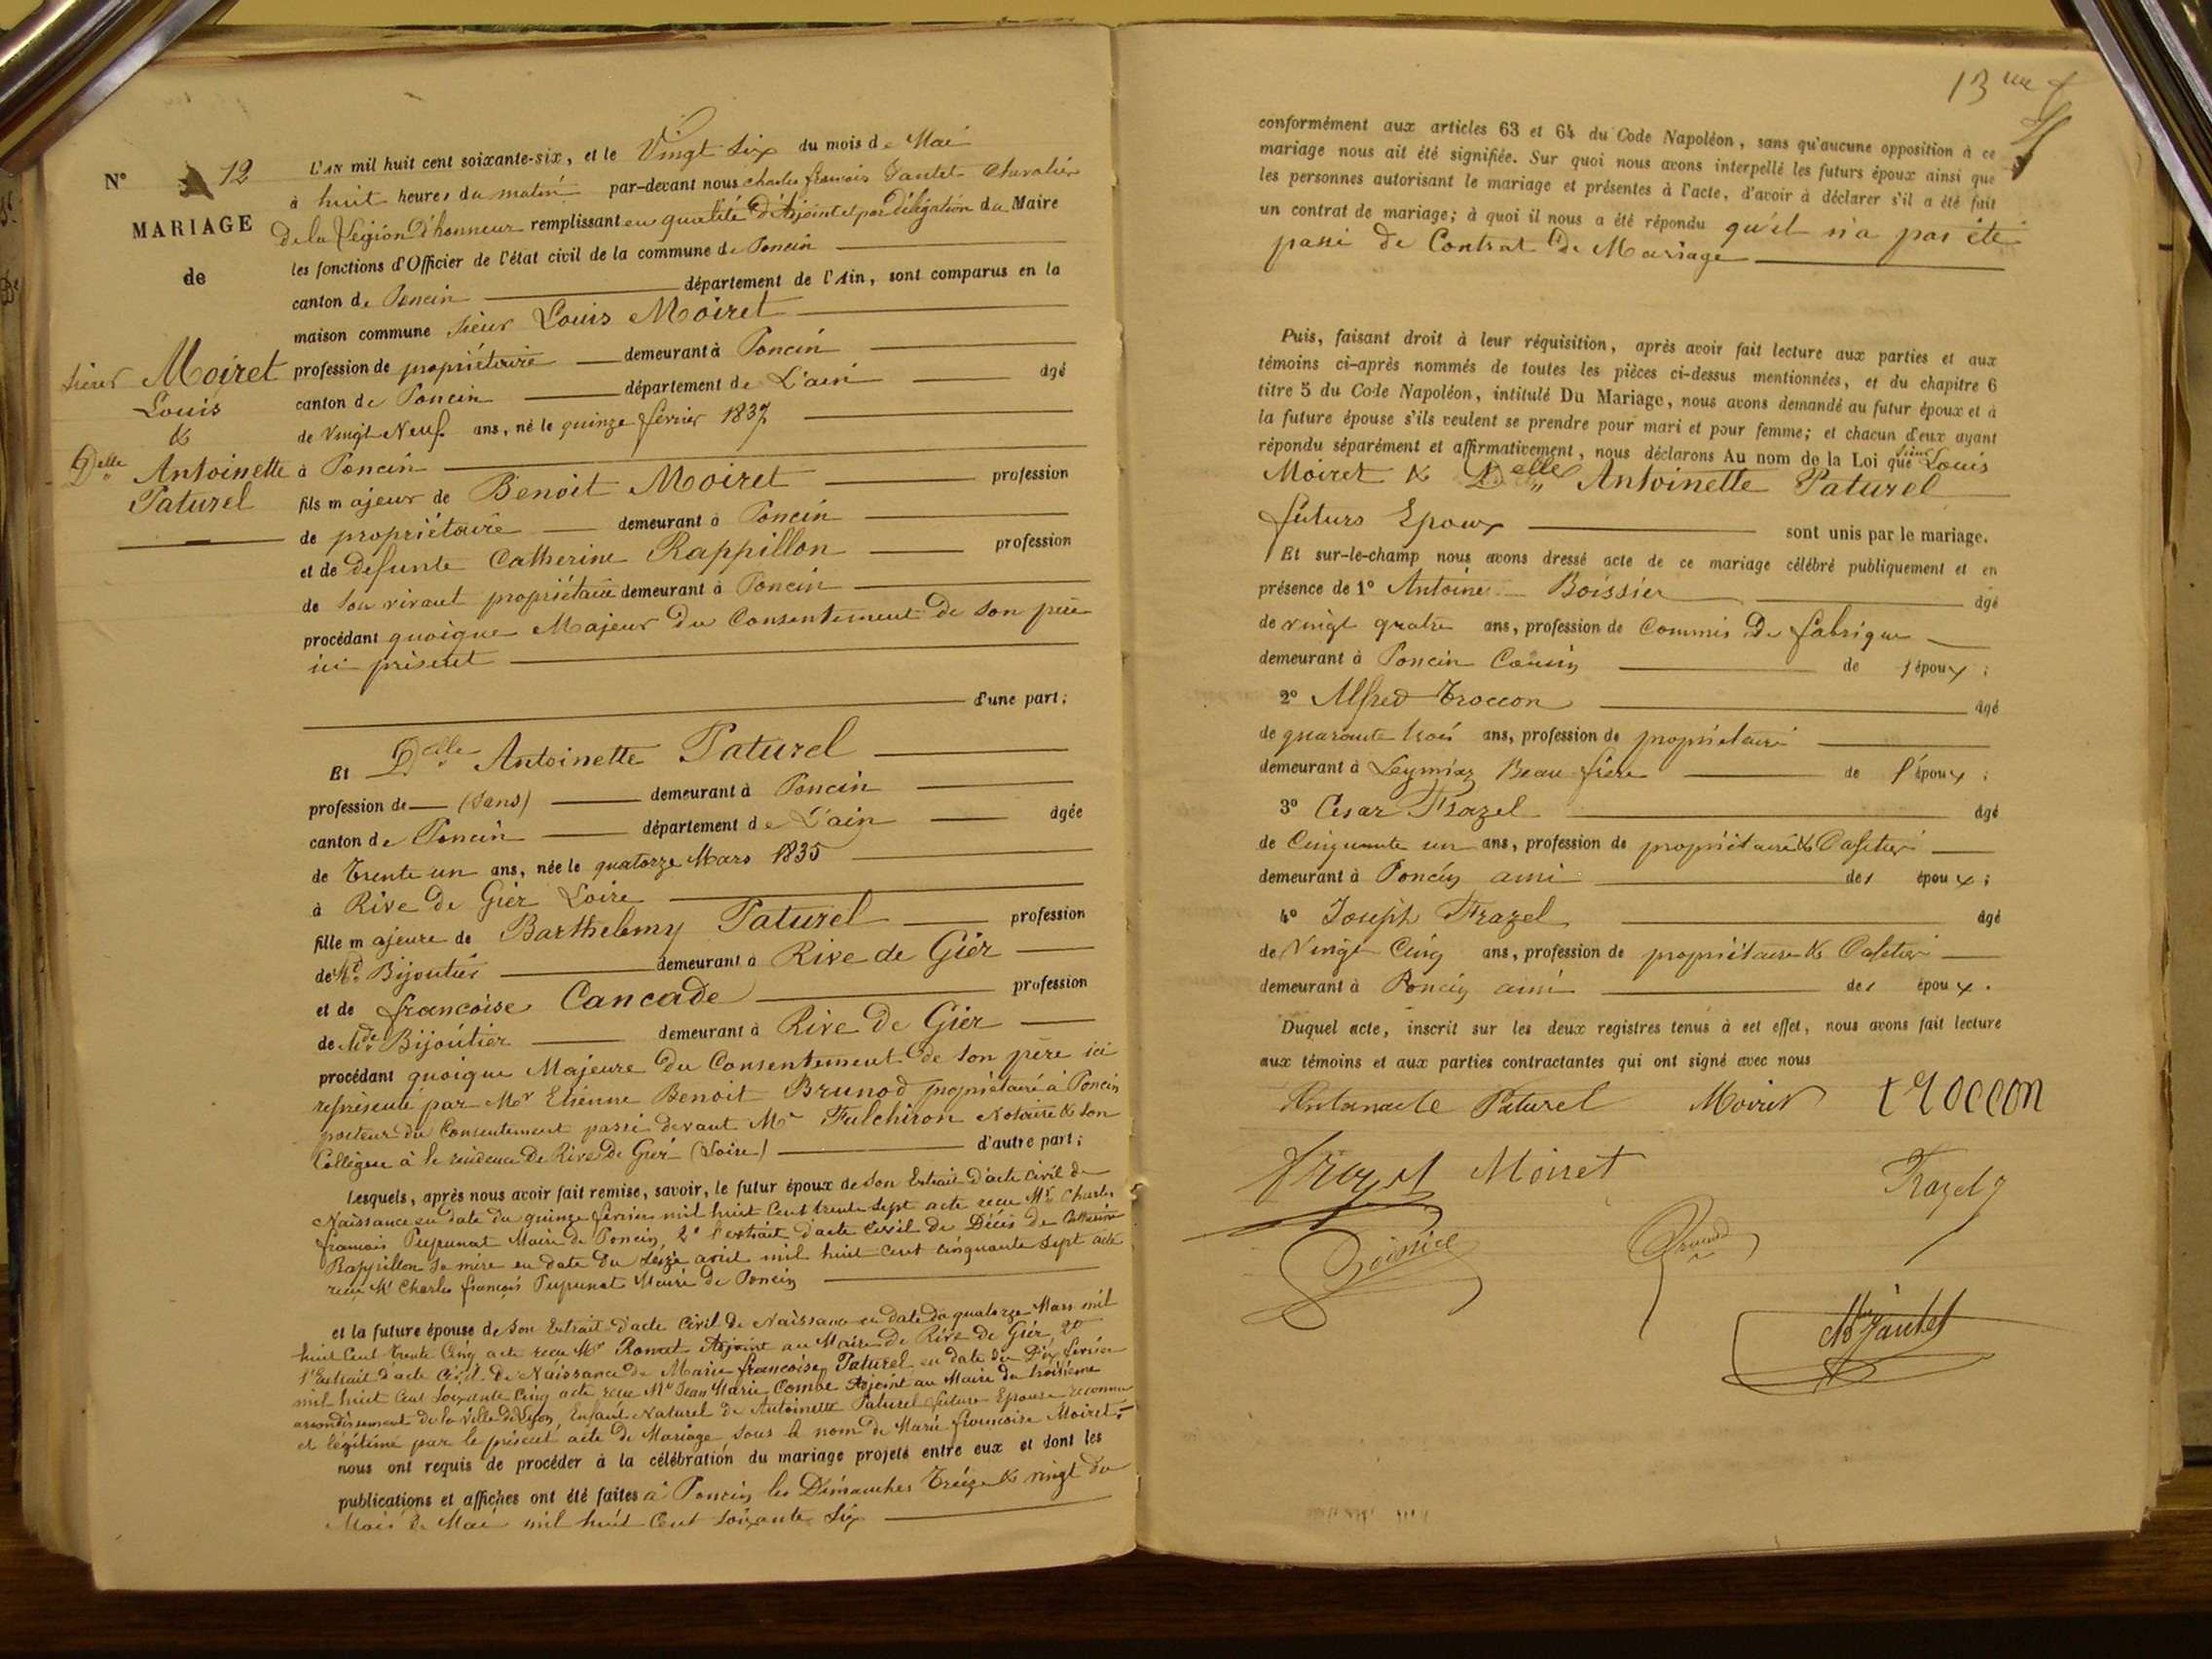 N° 12
MARIAGE
de
Sieur Moiret
Louis
&
Delle Antoinette
Paturel
L'AN mil huit cent soixante-six, et le Vingt Six du mois de Mai
à huit heures du matin par-devant nous Charles françois Jantet Chevalier
De la Légion d'honneur remplissant en qualité d'Adjoint et par Délégation du Maire
les fonctions d'Officier de l'état civil de la commune de Poncin
canton de Poncin département de l'Ain, sont comparus en la
maison commune Sieur Louis Moiret
profession de propriétaire demeurant à Poncin
canton de Poncin département de L'ain âgé
de Vingt Neuf ans, né le quinze février 1837
à Poncin
fils majeur de Benoit Moiret profession
de propriétaire demeurant à Poncin
et de defunte Catherine Rappillon profession
de son vivant propriétaire demeurant à Poncin
procédant quoique Majeur Du Consentement De Son père
ici présent
d'une part;
Et Delle Antoinette Paturel
profession de (Sans) demeurant à Poncin
canton de Poncin département de L'ain âgée
de Trente un ans, née le quatorze Mars 1835
à Rive De Gier Loire
fille majeure de Barthelemy Paturel profession
de Md Bijoutier demeurant à Rive de Gier
et de françoise Cancade profession
de Mde Bijoutier demeurant à Rive De Gier
procédant quoique Majeure Du Consentement De Son père ici
représenté par Mr Etienne Benoit Brunod propriétaire à Poncin
porteur du Consentement passé devant Me Fulchiron Notaire & Son
Collègue à la résidence De Rive De Gier (Loire) d'autre part;
Lesquels, après nous avoir fait remise, savoir, le futur époux de Son Extrait d'acte Civil de
Naissance en date du quinze février mil huit Cent trente Sept acte reçu Mr Charles
françois Pupunat Maire de Poncin, 2° l'extrait d'acte Civil de Décès De Catherine
Rappillon Sa mère en date du Seize avril mil huit Cent cinquante Sept acte
reçu Mr Charles françois Pupunat Maire De Poncin
et la future épouse de Son Extrait d'acte Civil De Naissance en date du quatorze Mars mil
huit Cent Trente Cinq acte reçu Mr Adjoint au Maire De Rive De Gier, 2°
l'Extrait d'acte Civil De Naissance De Marie françoise Paturel en date du Dix février
mil huit Cent Soixante Cinq acte reçu Mr Jean Marie Combe Adjoint au Maire du troisième
arrondissement de la Ville De Lyon, Enfant Naturel De Antoinette Paturel future Epouse reconnu
et légitimé par le présent acte De Mariage Sous le nom De Marie françoise Moiret;
nous ont requis de procéder à la célébration du mariage projeté entre eux et dont les
publications et affiches ont été faites à Poncin les Dimanches Treize & vingt du
Mois De Mai mil huit Cent Soixante Six
13me f
conformément aux articles 63 et 64 du Code Napoléon, sans qu'aucune opposition à ce
mariage nous ait été signifiée. Sur quoi nous avons interpellé les futurs époux ainsi que
les personnes autorisant le mariage et présentes à l'acte, d'avoir à déclarer s'il a été fait
un contrat de mariage; à quoi il nous a été répondu qu'il n'a pas été
passé de Contrat De Mariage
Puis, faisant droit à leur réquisition, après avoir fait lecture aux parties et aux
témoins ci-après nommés de toutes les pièces ci-dessus mentionnées, et du chapitre 6
titre 5 du Code Napoléon, intitulé Du Mariage, nous avons demandé au futur époux et à
la future épouse s'ils veulent se prendre pour mari et pour femme; et chacun d'eux ayant
répondu séparément et affirmativement, nous déclarons Au nom de la Loi que Sieur Louis
Moiret & Delle Antoinette Paturel
futurs Epoux sont unis par le mariage.
Et sur-le-champ nous avons dressé acte de ce mariage célébré publiquement et en
présence de 1° Antoine Boissier âgé
de vingt quatre ans, profession de Commis De fabrique
demeurant à Poncin Cousin de l'époux;
2° Alfred Troccon âgé
de quarante trois ans, profession de propriétaire
demeurant à Leymiaz Beau frère de l'époux;
3° César Frazel âgé
de Cinquante un ans, profession de propriétaire & Cafetier
demeurant à Poncin ami des époux;
4° Joseph Frazel âgé
de Vingt Cinq ans, profession de propriétaire & Cafetier
demeurant à Poncin ami des époux.
Duquel acte, inscrit sur les deux registres tenus à cet effet, nous avons fait lecture
aux témoins et aux parties contractantes qui ont signé avec nous
Paturel Moiret troccon
Frazel Moiret Frazel
Boissier Brunod
Jantet